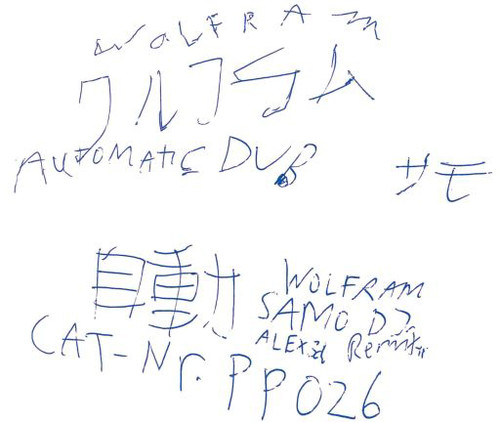 WOLFRAM
ワルフラム
AUTOMATIC DUB
サモ
自動
WOLFRAM
SAMO DJ
Remix
CAT-Nr. PP026